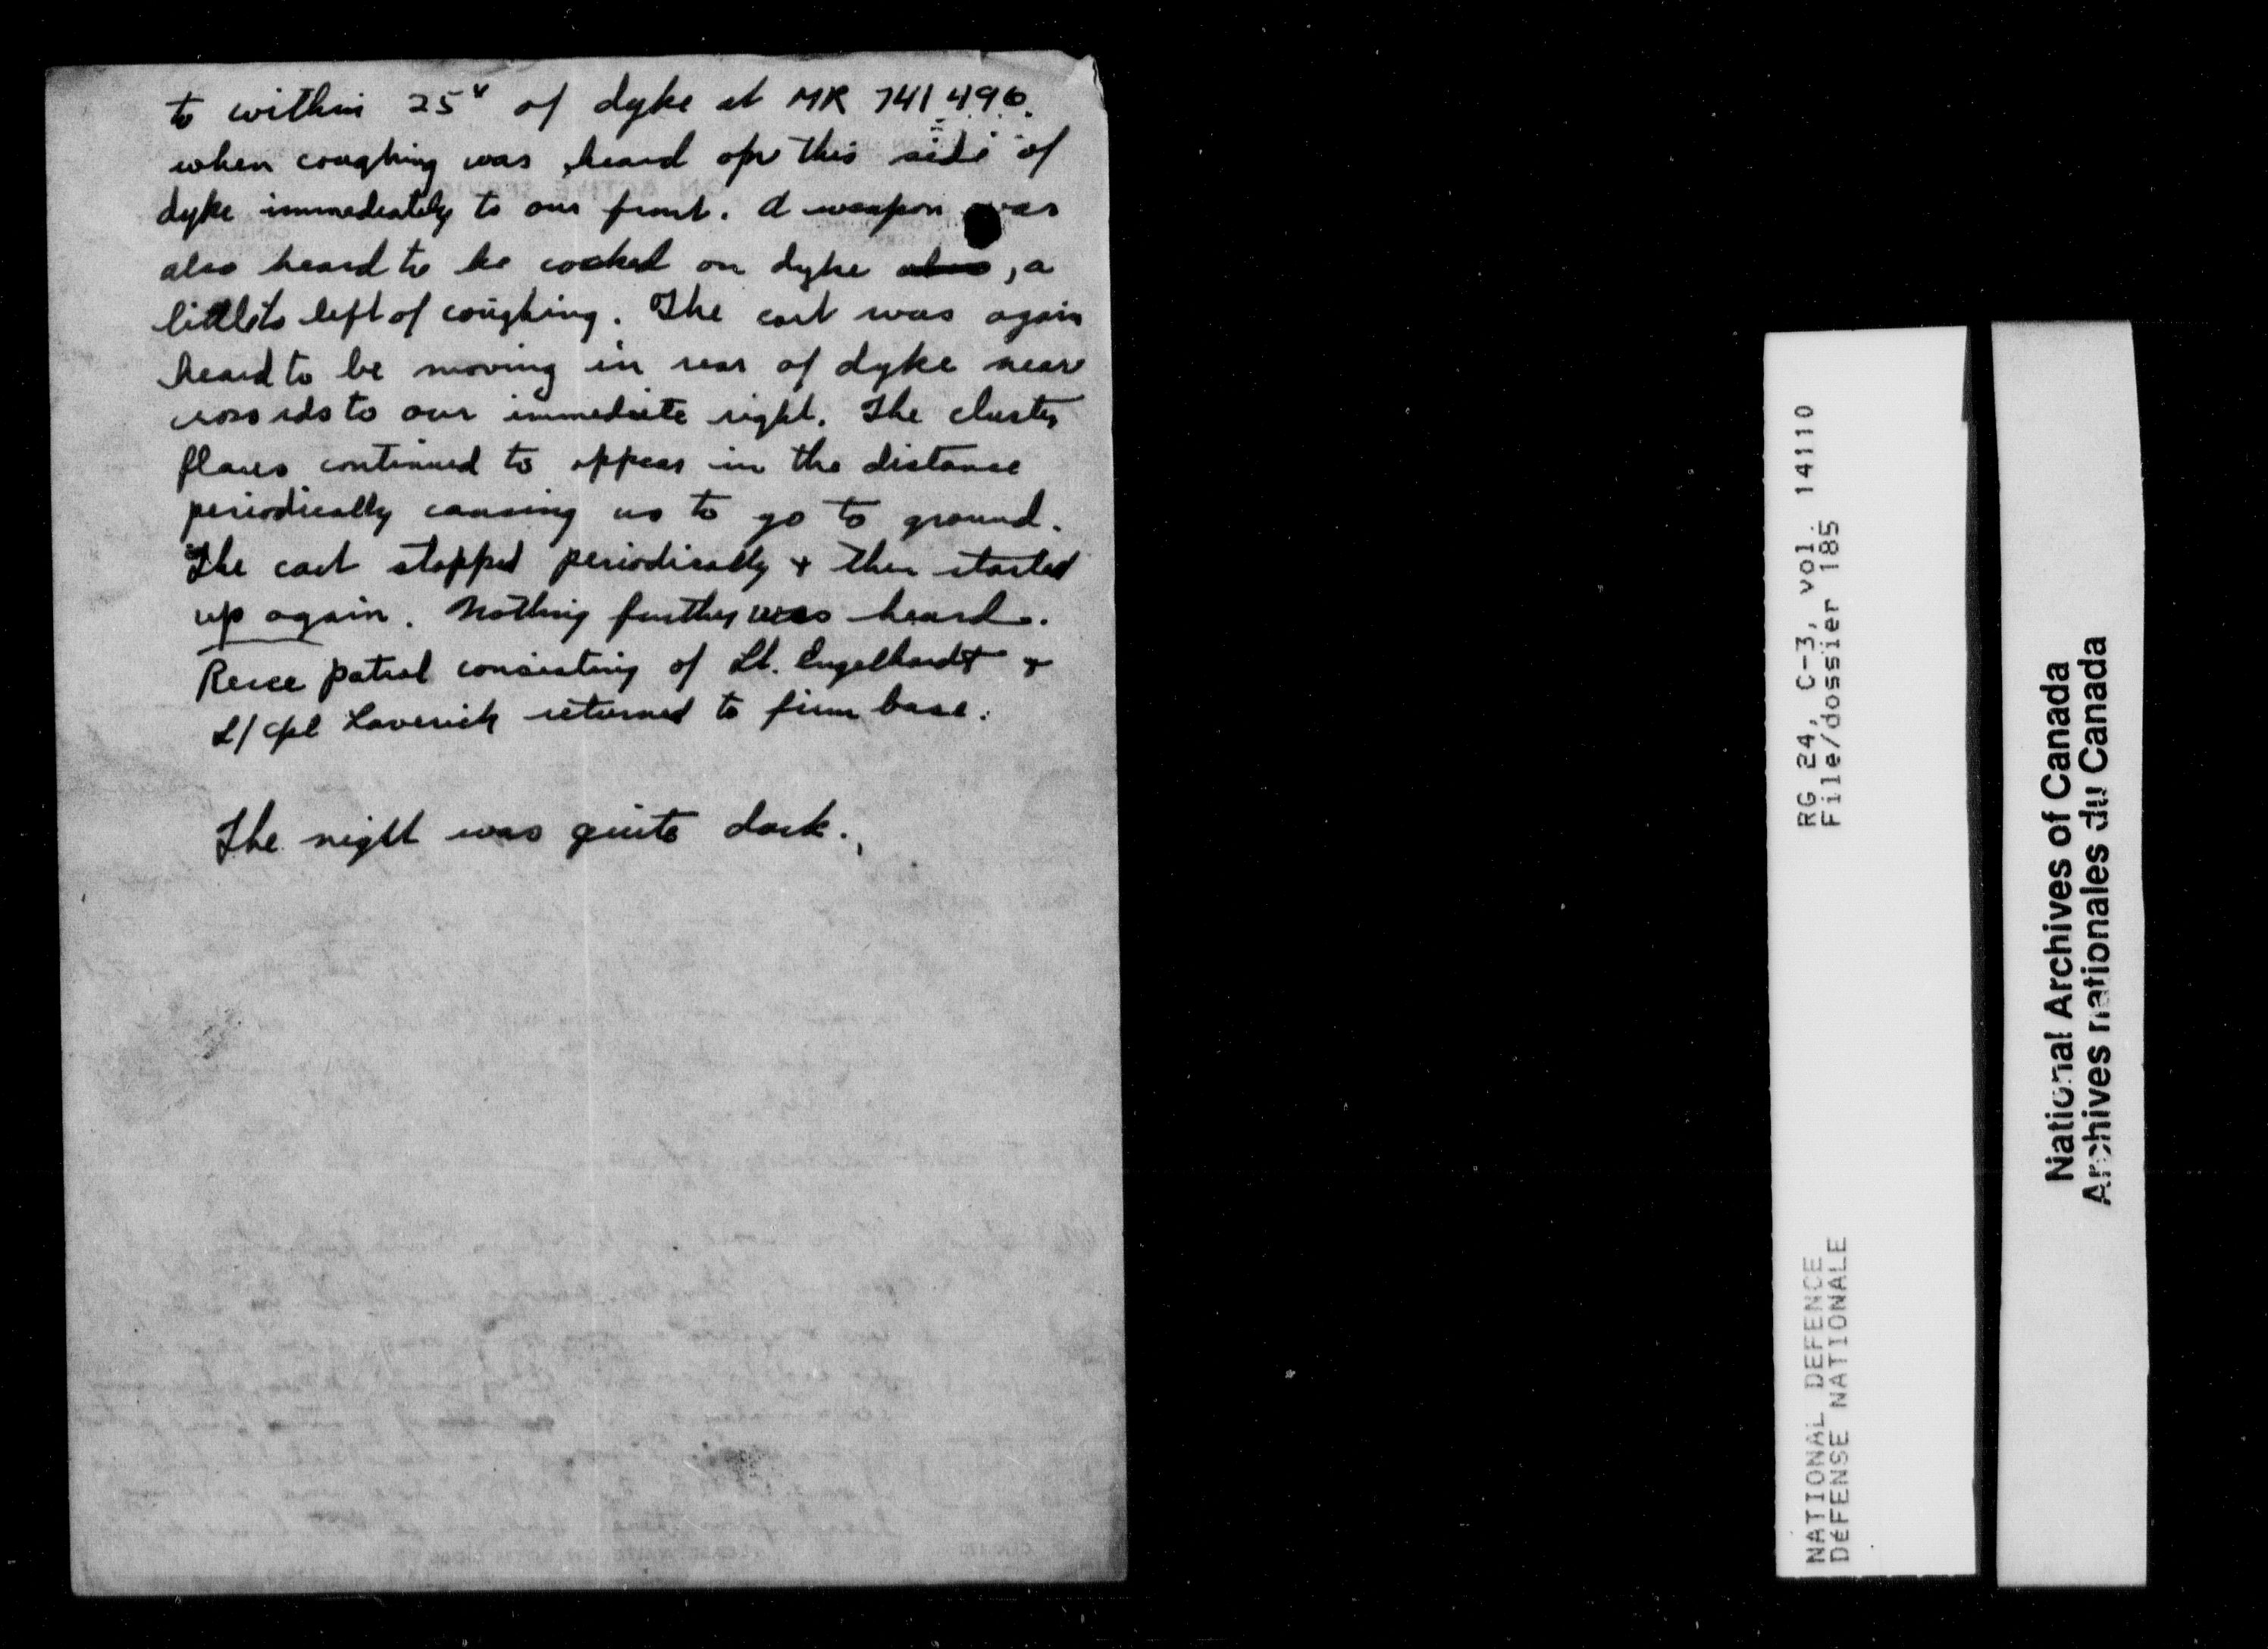 to within 25ˣ of dyke at MR 741496.
when coughing was heard on this side of
dyke immediately to our front. A weapon was
also heard to be cocked on dyke also, a
little to left of coughing. The cart was again
heard to be moving in rear of dyke near
cross rds to our immediate right. The cluster
flares continued to appear in the distance
periodically causing us to go to ground.
The cart stopped periodically + then started
up again. Nothing further was heard.
Recce patrol consisting of Lt. Engelhardt +
L/Cpl Laverick returned to firm base.
The night was quite dark.
RG 24, C-3, vol. 14110
File/dossier 185
NATIONAL DEFENCE
DéFENSE NATIONALE
National Archives of Canada
Archives nationales du Canada